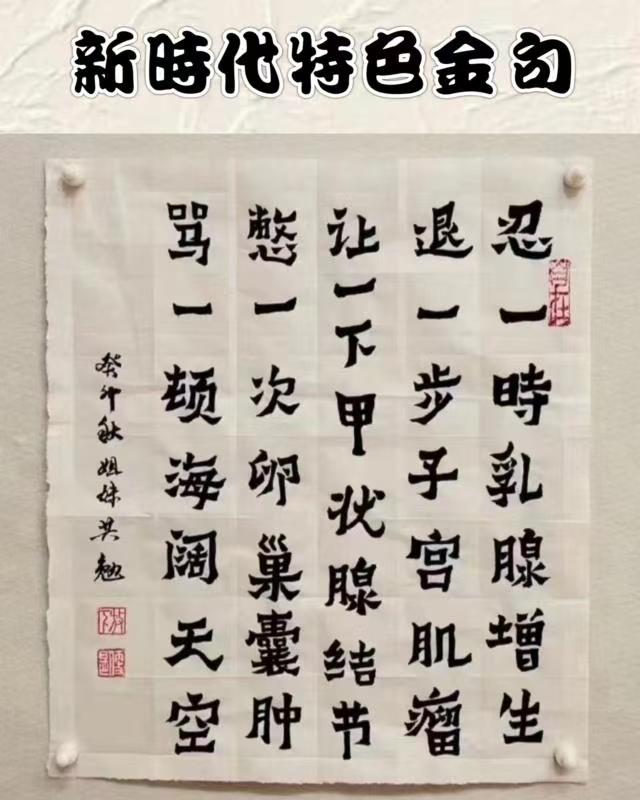 新時代特色金句
忍一時乳腺增生
退一步子宫肌瘤
让一下甲状腺结节
憋一次卵巢囊肿
骂一顿海阔天空
癸卯秋姐妹共勉